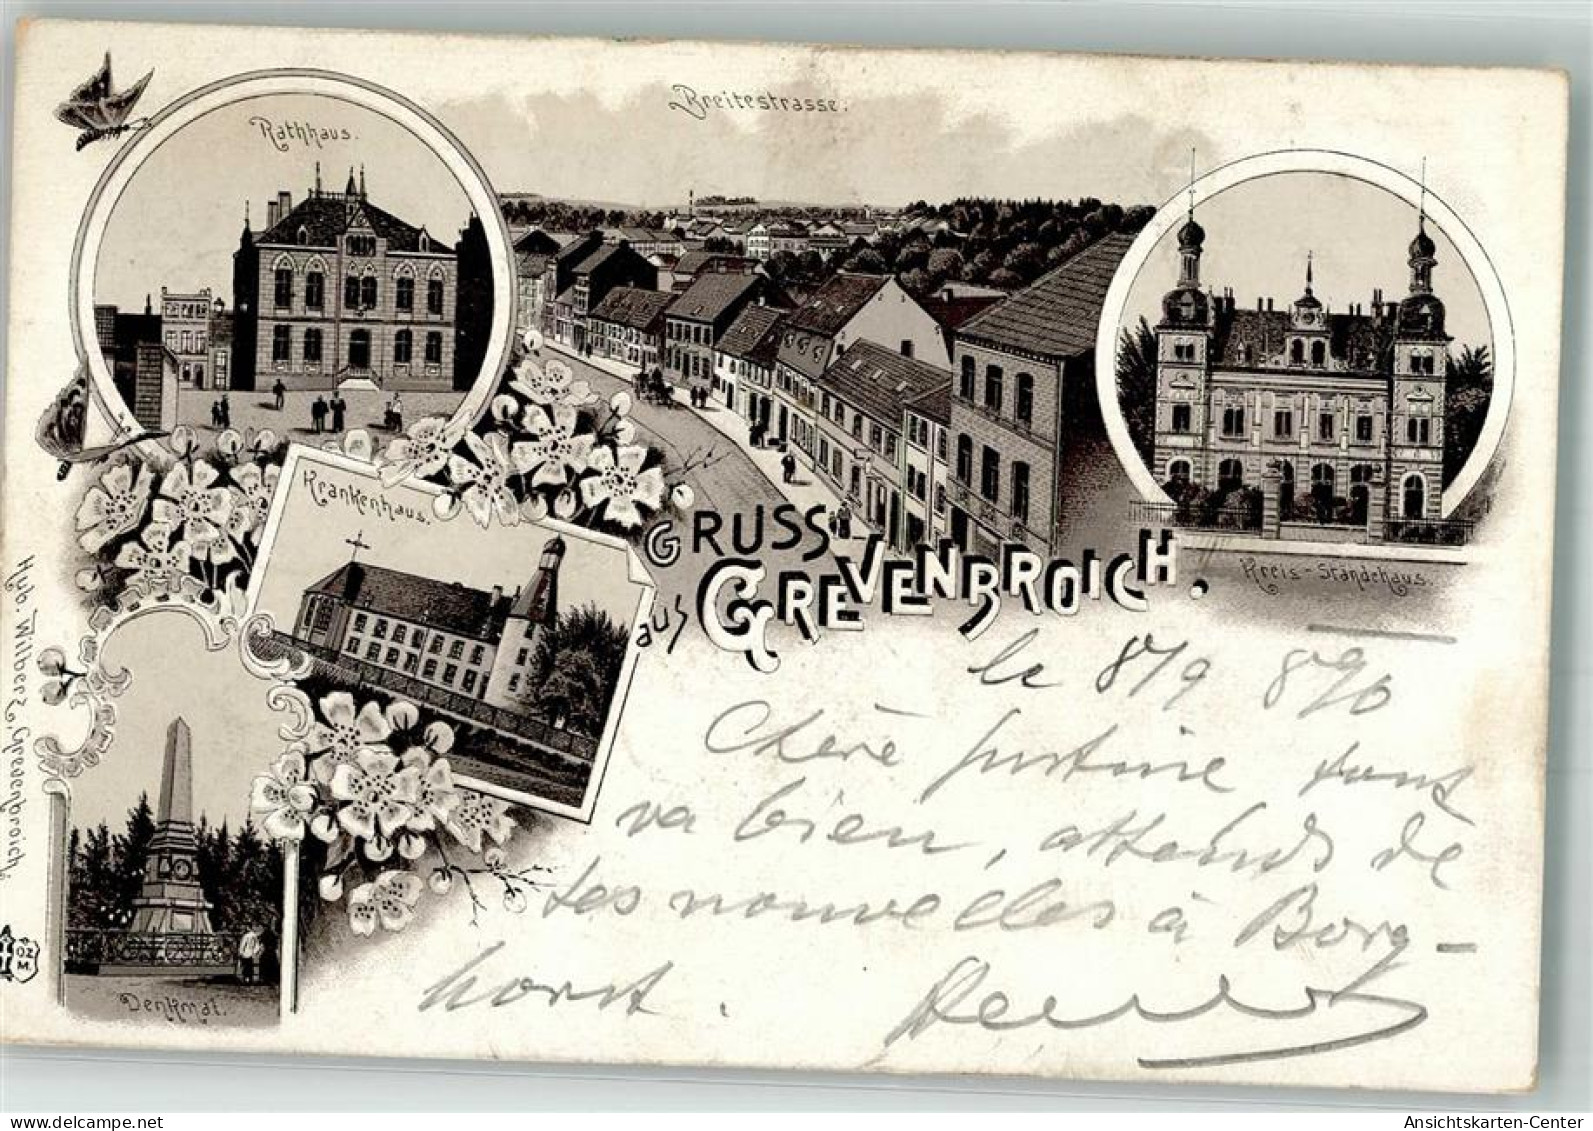 Rathhaus.
Breitestrasse.
Kreis-Ständehaus.
Krankenhaus.
GRUSS
aus GREVENBROICH.
Denkmal.
Hub. Wilberz, Grevenbroich.
OZ
M.
le 8/9 890
Chère Justine tout
va bien, attends de
tes nouvelles à Borg-
horst.
Ansichtskarten-Center